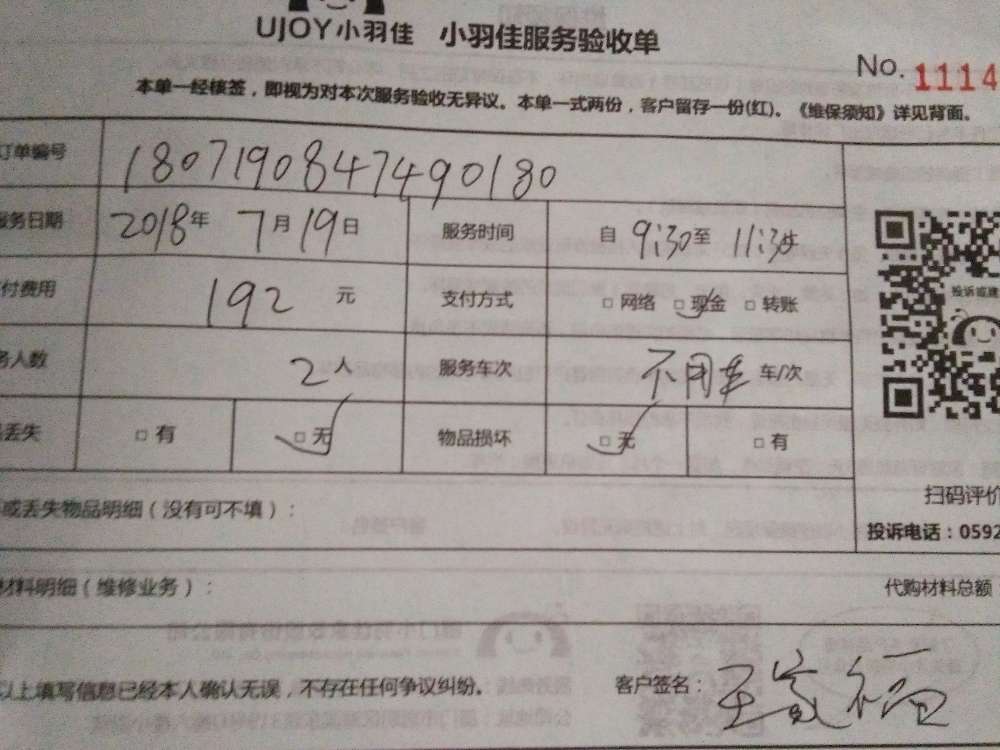 UJOY小羽佳 小羽佳服务验收单
No. 1114
本单一经核签，即视为对本次服务验收无异议。本单一式两份，客户留存一份(红)。《维保须知》详见背面。
订单编号 1807190847490180
服务日期 2018年 7月19日 服务时间 自 9:30至 11:30
付费用 192 元 支付方式 □网络 □现金 □转账
务人数 2人 服务车次 不用车 车/次
丢失 □有 □无 物品损坏 □无 □有
投诉或建
扫码评价
或丢失物品明细（没有可不填）：
投诉电话：0592
材料明细（维修业务）： 代购材料总额
以上填写信息已经本人确认无误，不存在任何争议纠纷。 客户签名：